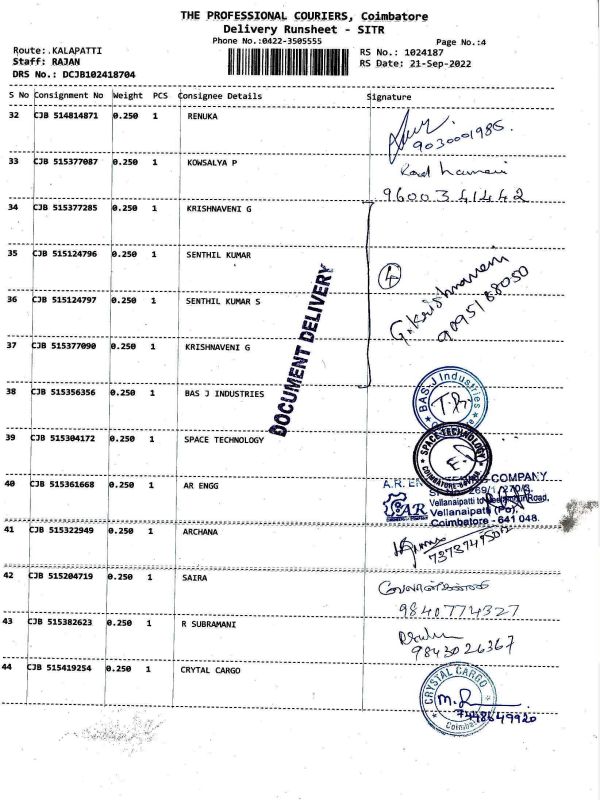 THE PROFESSIONAL COURIERS, Coimbatore
Delivery Runsheet - SITR
Phone No.:0422-3505555
Page No.:4
Route:.KALAPATTI
RS No.: 1024187
Staff: RAJAN
RS Date: 21-Sep-2022
DRS No.: DCJB102418704
S No Consignment No Weight PCS Consignee Details Signature
32 CJB 514814871 0.250 1 RENUKA
9030001985.
33 CJB 515377087 0.250 1 KOWSALYA P
9600341442
34 CJB 515377285 0.250 1 KRISHNAVENI G
35 CJB 515124796 0.250 1 SENTHIL KUMAR
4
G.Krishnaveni
36 CJB 515124797 0.250 1 SENTHIL KUMAR S
DOCUMENT DELIVERY
37 CJB 515377090 0.250 1 KRISHNAVENI G
38 CJB 515356356 0.250 1 BAS J INDUSTRIES
BAS J Industries
39 CJB 515304172 0.250 1 SPACE TECHNOLOGY
SPACE TECHNOLOGY
40 CJB 515361668 0.250 1 AR ENGG
COMPANY
269/1, 270/3,
Vellanaipatti to Road,
CAR Vellanaipatti (Po),
Coimbatore - 641 048.
41 CJB 515322949 0.250 1 ARCHANA
42 CJB 515204719 0.250 1 SAIRA
9840774327
43 CJB 515382623 0.250 1 R SUBRAMANI
9843026367
44 CJB 515419254 0.250 1 CRYTAL CARGO
CRYSTAL CARGO
7448649920
Coimbatore